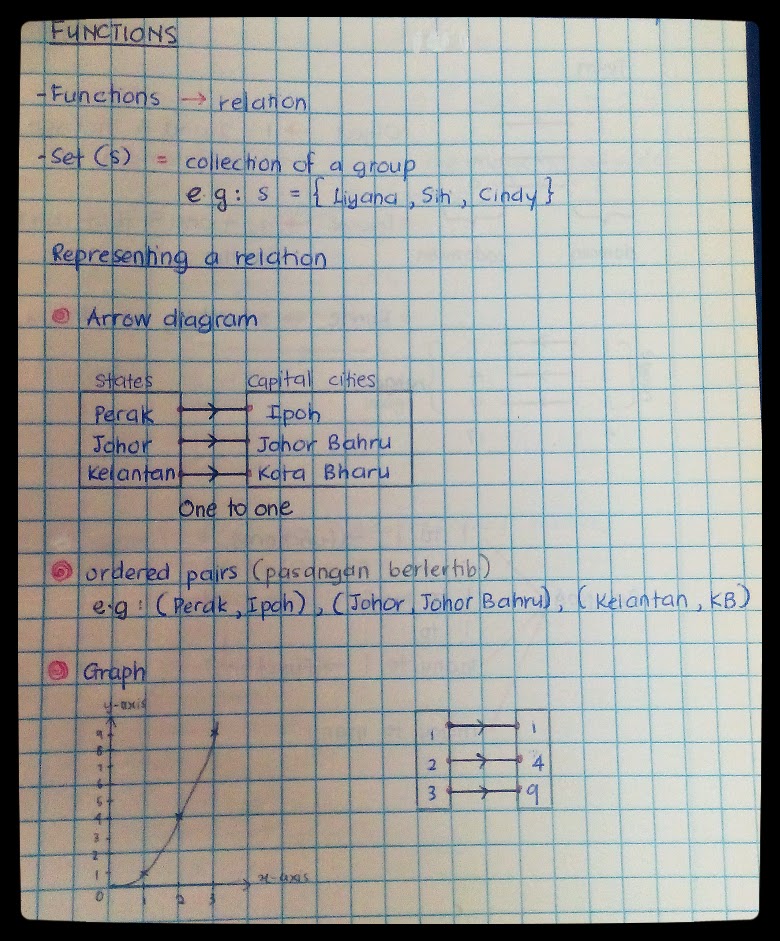 FUNCTIONS
-Functions → relation
-Set (s) = collection of a group
e.g: s = { Liyana, Siti, Cindy }
Representing a relation
Arrow diagram
states capital cities
Perak Ipoh
Johor Johor Bahru
Kelantan Kota Bharu
One to one
ordered pairs (pasangan bertertib)
e.g : (Perak, Ipoh), (Johor, Johor Bahru), (Kelantan, KB)
Graph
y-axis
9
8
7
6
5
4
3
2
1
0 1 2 3
x-axis
1 1
2 4
3 9